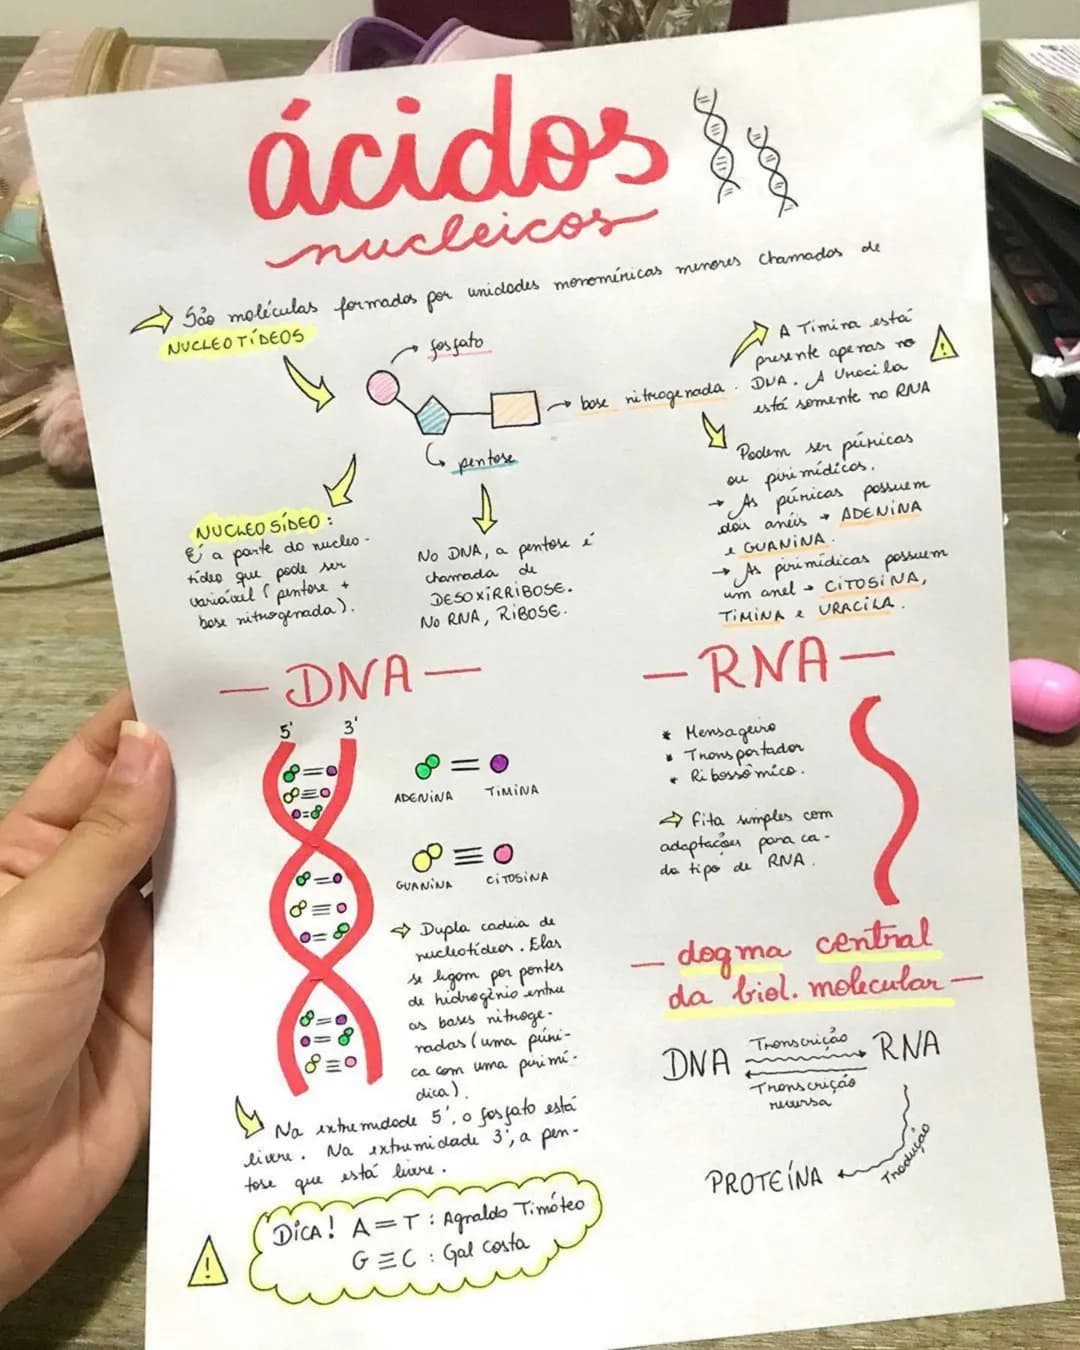 ácidos
nucleicos
São moléculas formados por unidades monoméricas menores chamados de
NUCLEOTÍDEOS
fosfato
base nitrogenada.
pentose
A Timina está
presente apenas no
DNA. A Uracila
está somente no RNA
!
Podem ser púricas
ou pirimídicas.
→ As púricas possuem
dois anéis → ADENINA
e GUANINA.
→ As pirimídicas possuem
um anel → CITOSINA,
TIMINA e URACILA.
NUCLEOSÍDEO:
É a parte do nucleo-
tídeo que pode ser
variável (pentose +
base nitrogenada).
No DNA, a pentose é
chamada de
DESOXIRRIBOSE.
No RNA, RIBOSE.
— DNA —
5' 3'
ADENINA = TIMINA
GUANINA ≡ CITOSINA
⇒ Dupla cadeia de
nucleotídeos. Elas
se ligam por pontes
de hidrogênio entre
as bases nitroge-
nadas (uma púri-
ca com uma pirimí-
dica).
Na extremidade 5', o fosfato está
livre. Na extremidade 3', a pen-
tose que está livre.
!
DICA! A=T: Agnaldo Timóteo
G≡C: Gal Costa
— RNA —
* Mensageiro
* Transportador
* Ribossômico.
⇒ Fita simples com
adaptações para ca-
da tipo de RNA.
— dogma central
da biol. molecular —
DNA Transcrição RNA
Transcrição
reversa
Tradução
PROTEÍNA